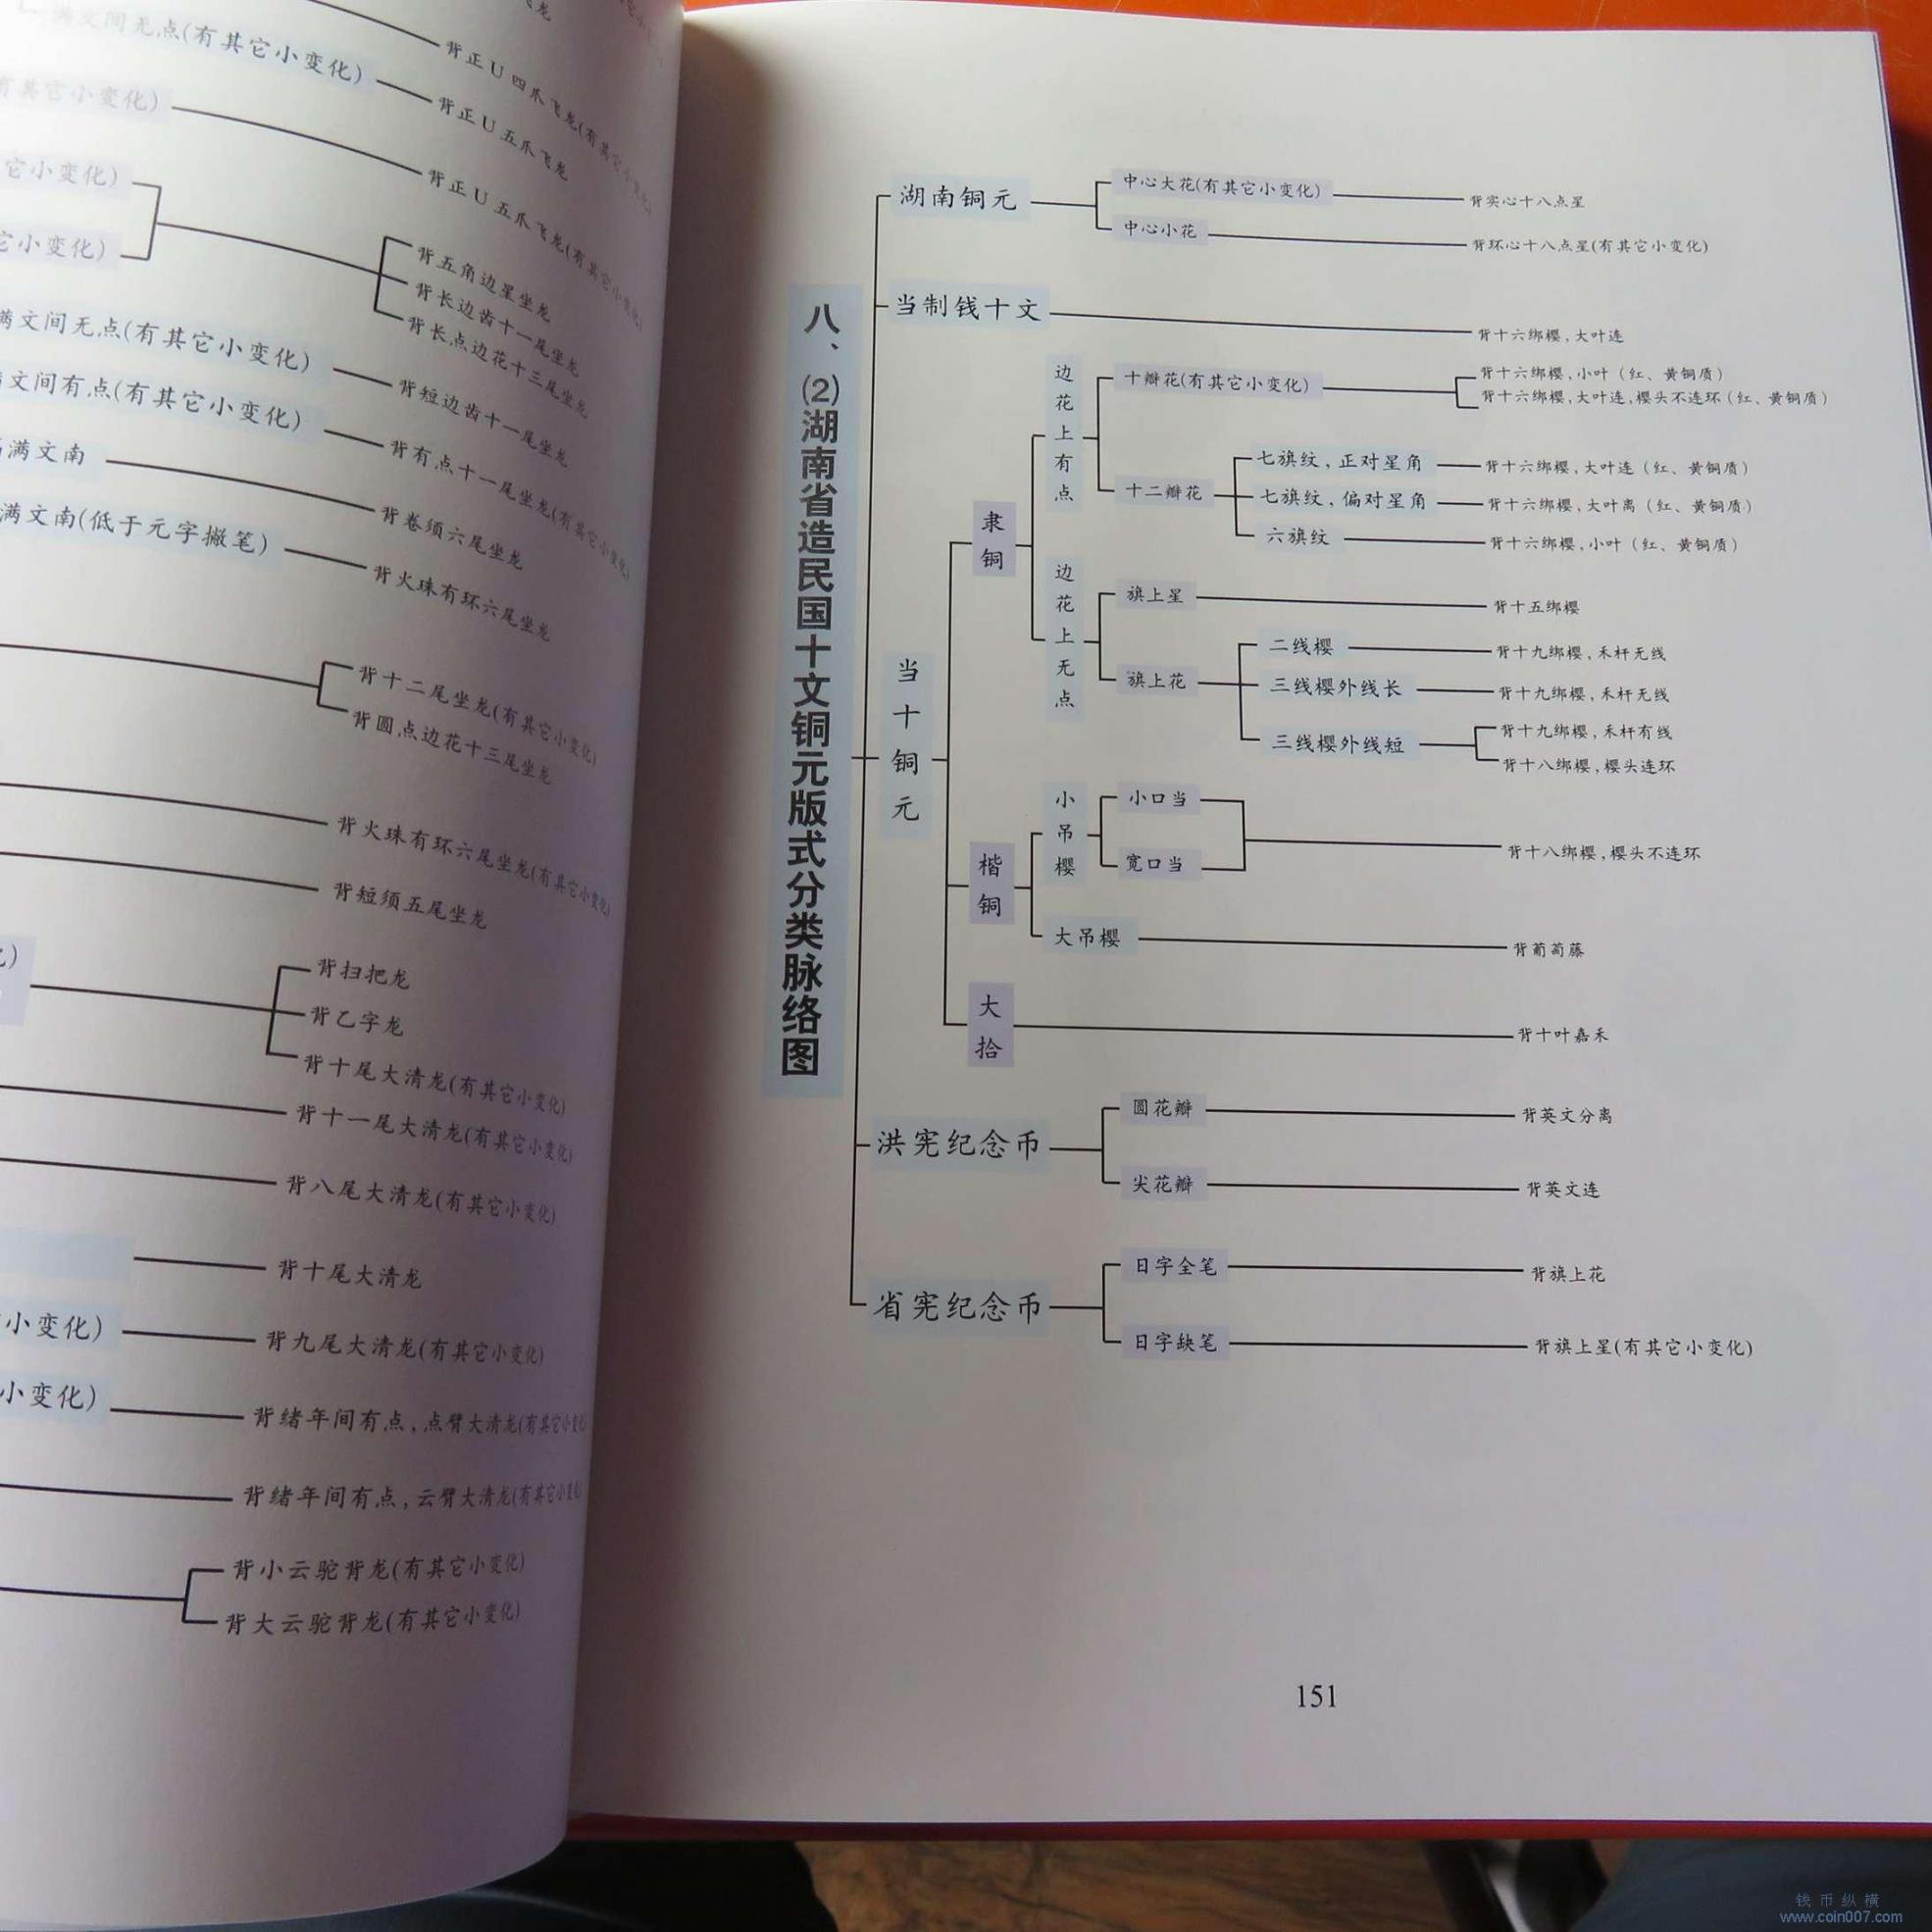 满文间无点(有其它小变化)
背正U四爪飞龙(有其它小变化)
有其它小变化)
背正U五爪飞龙
背正U五爪飞龙(有其它小变化)
它小变化)
它小变化)
背五角边星坐龙
背长边齿十一尾坐龙
背长点边花十三尾坐龙
满文间无点(有其它小变化)
背短边齿十一尾坐龙
文间有点(有其它小变化)
背有点十一尾坐龙(有其它小变化)
满文南
背卷须六尾坐龙
满文南(低于元字撇笔)
背火珠有环六尾坐龙
背十二尾坐龙(有其它小变化)
背圆点边花十三尾坐龙
背火珠有环六尾坐龙(有其它小变化)
背短须五尾坐龙
背扫把龙
背乙字龙
背十尾大清龙(有其它小变化)
背十一尾大清龙(有其它小变化)
背八尾大清龙(有其它小变化)
背十尾大清龙
小变化)
背九尾大清龙(有其它小变化)
小变化)
背绪年间有点,点臂大清龙(有其它小变化
背绪年间有点,云臂大清龙(有其它小变化
背小云驼背龙(有其它小变化)
背大云驼背龙(有其它小变化)
八、(2)湖南省造民国十文铜元版式分类脉络图
湖南铜元
中心大花(有其它小变化)
背实心十八点星
中心小花
背环心十八点星(有其它小变化)
当制钱十文
背十六绑樱,大叶连
当十铜元
隶铜
边花上有点
十瓣花(有其它小变化)
背十六绑樱,小叶(红、黄铜质)
背十六绑樱,大叶连,樱头不连环(红、黄铜质)
十二瓣花
七旗纹,正对星角
背十六绑樱,大叶连(红、黄铜质)
七旗纹,偏对星角
背十六绑樱,大叶离(红、黄铜质)
六旗纹
背十六绑樱,小叶(红、黄铜质)
边花上无点
旗上星
背十五绑樱
旗上花
二线樱
背十九绑樱,禾杆无线
三线樱外线长
背十九绑樱,禾杆无线
三线樱外线短
背十九绑樱,禾杆有线
背十八绑樱,樱头连环
楷铜
小吊樱
小口当
宽口当
背十八绑樱,樱头不连环
大吊樱
背葡萄藤
大拾
背十叶嘉禾
洪宪纪念币
圆花瓣
背英文分离
尖花瓣
背英文连
省宪纪念币
日字全笔
背旗上花
日字缺笔
背旗上星(有其它小变化)
151
钱币纵横
www.coin007.com